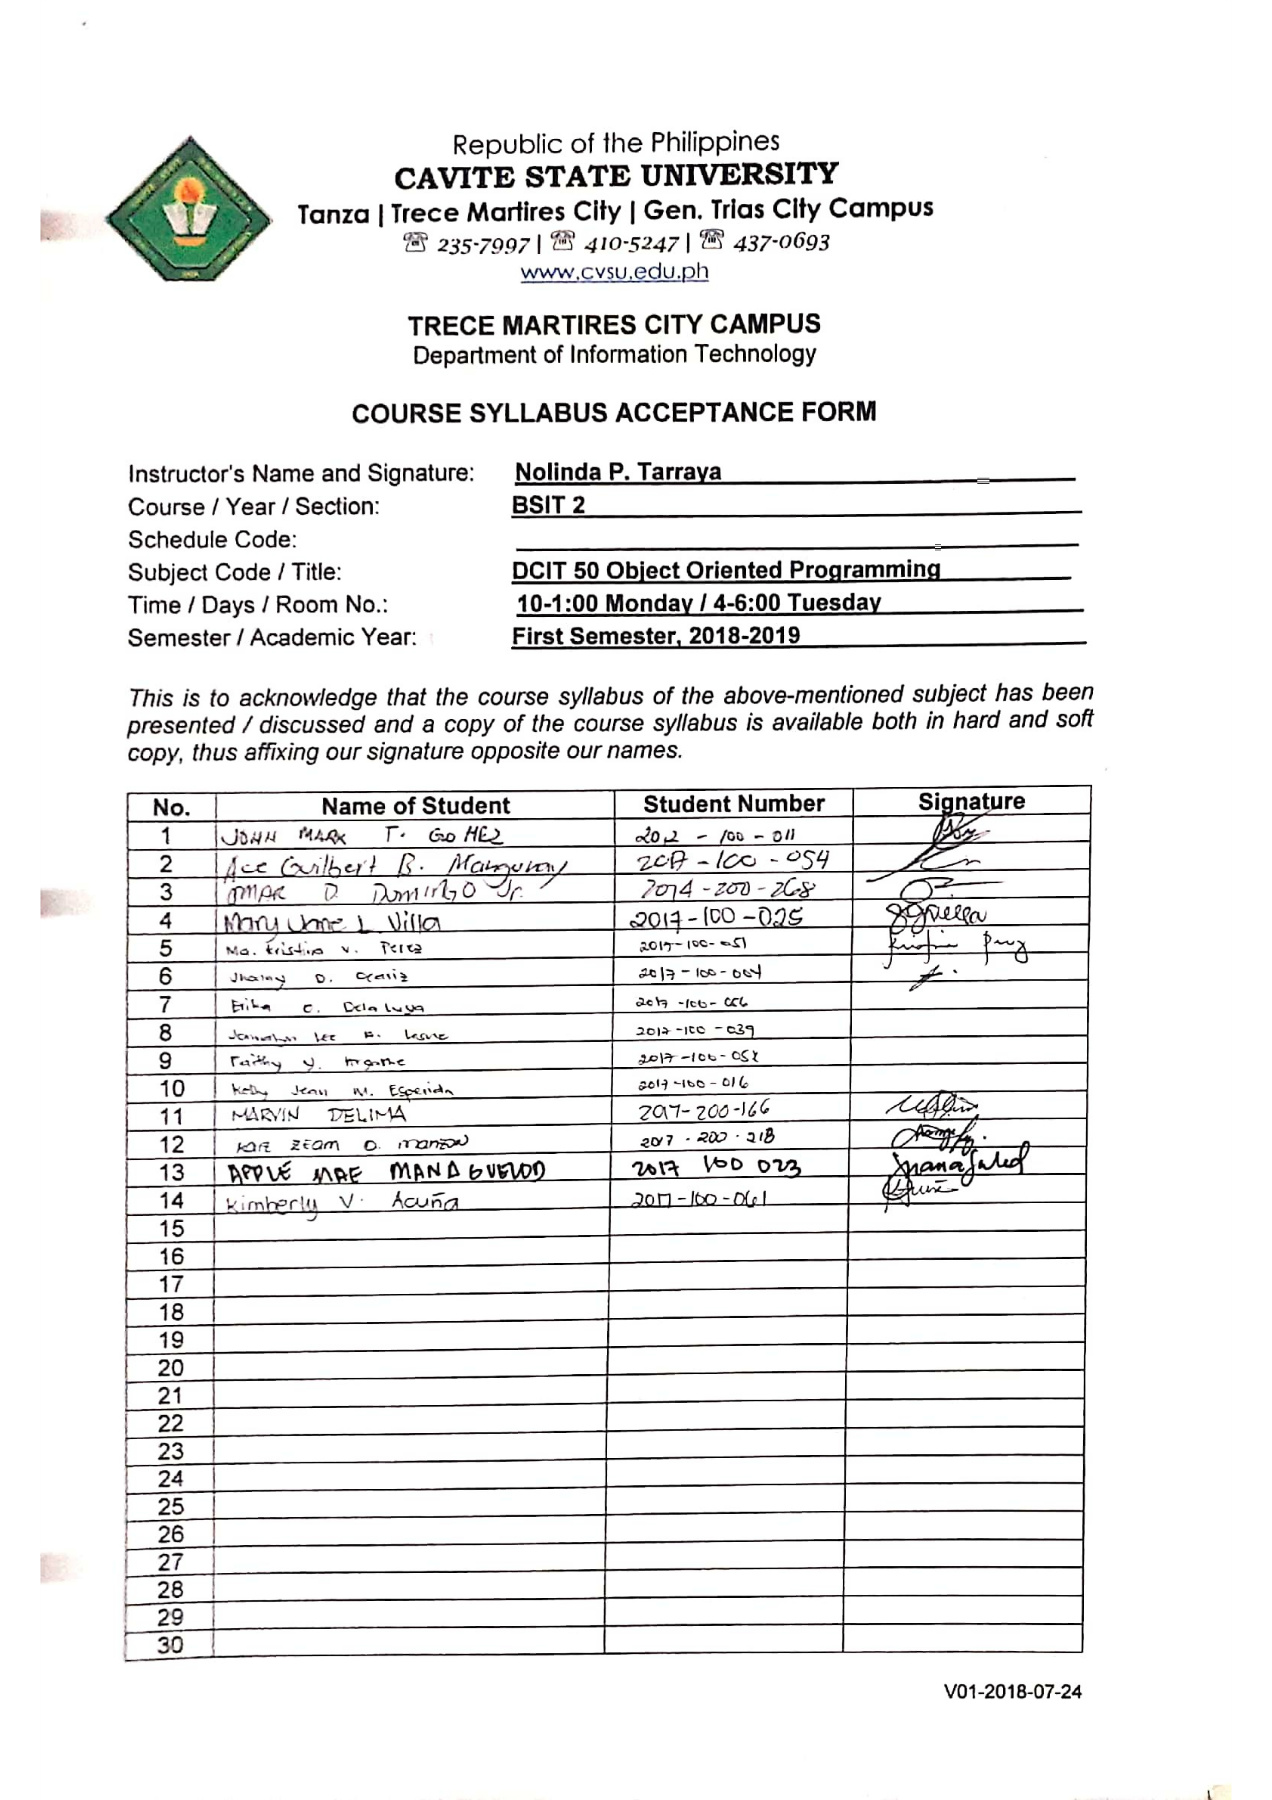 Republic of the Philippines
CAVITE STATE UNIVERSITY
Tanza | Trece Martires City | Gen. Trias City Campus
☏ 235-7997 | ☏ 410-5247 | ☏ 437-0693
www.cvsu.edu.ph
TRECE MARTIRES CITY CAMPUS
Department of Information Technology
COURSE SYLLABUS ACCEPTANCE FORM
Instructor's Name and Signature: Nolinda P. Tarraya
Course / Year / Section: BSIT 2
Schedule Code:
Subject Code / Title: DCIT 50 Object Oriented Programming
Time / Days / Room No.: 10-1:00 Monday / 4-6:00 Tuesday
Semester / Academic Year: First Semester, 2018-2019
This is to acknowledge that the course syllabus of the above-mentioned subject has been
presented / discussed and a copy of the course syllabus is available both in hard and soft
copy, thus affixing our signature opposite our names.
No. Name of Student Student Number Signature
1 JOHN MARK T. GOMEZ 2012 - 100 - 011
2 Ace Guilbert B. 2017 - 100 - 054
3 OMAR D. DOMINGO Jr. 2014 - 200 - 268
4 Mary Jane L Villa 2017-100-025
5 Ma. Kristina V. Perez 2017-100-051
6 D. 2017-100-004
7 Erika C. Dela 2017-100-
8 Lee 2017-100-039
9 Faithy Y. 2017-100-052
10 Kelly Jean M. Esperida 2017-100-016
11 MARVIN DELIMA 2017-200-166
12 ZEAM O. MANZON 2017-200-218
13 APPLE MAE 2017 100 023
14 Kimberly V. Acuña 2017-100-061
15
16
17
18
19
20
21
22
23
24
25
26
27
28
29
30
V01-2018-07-24